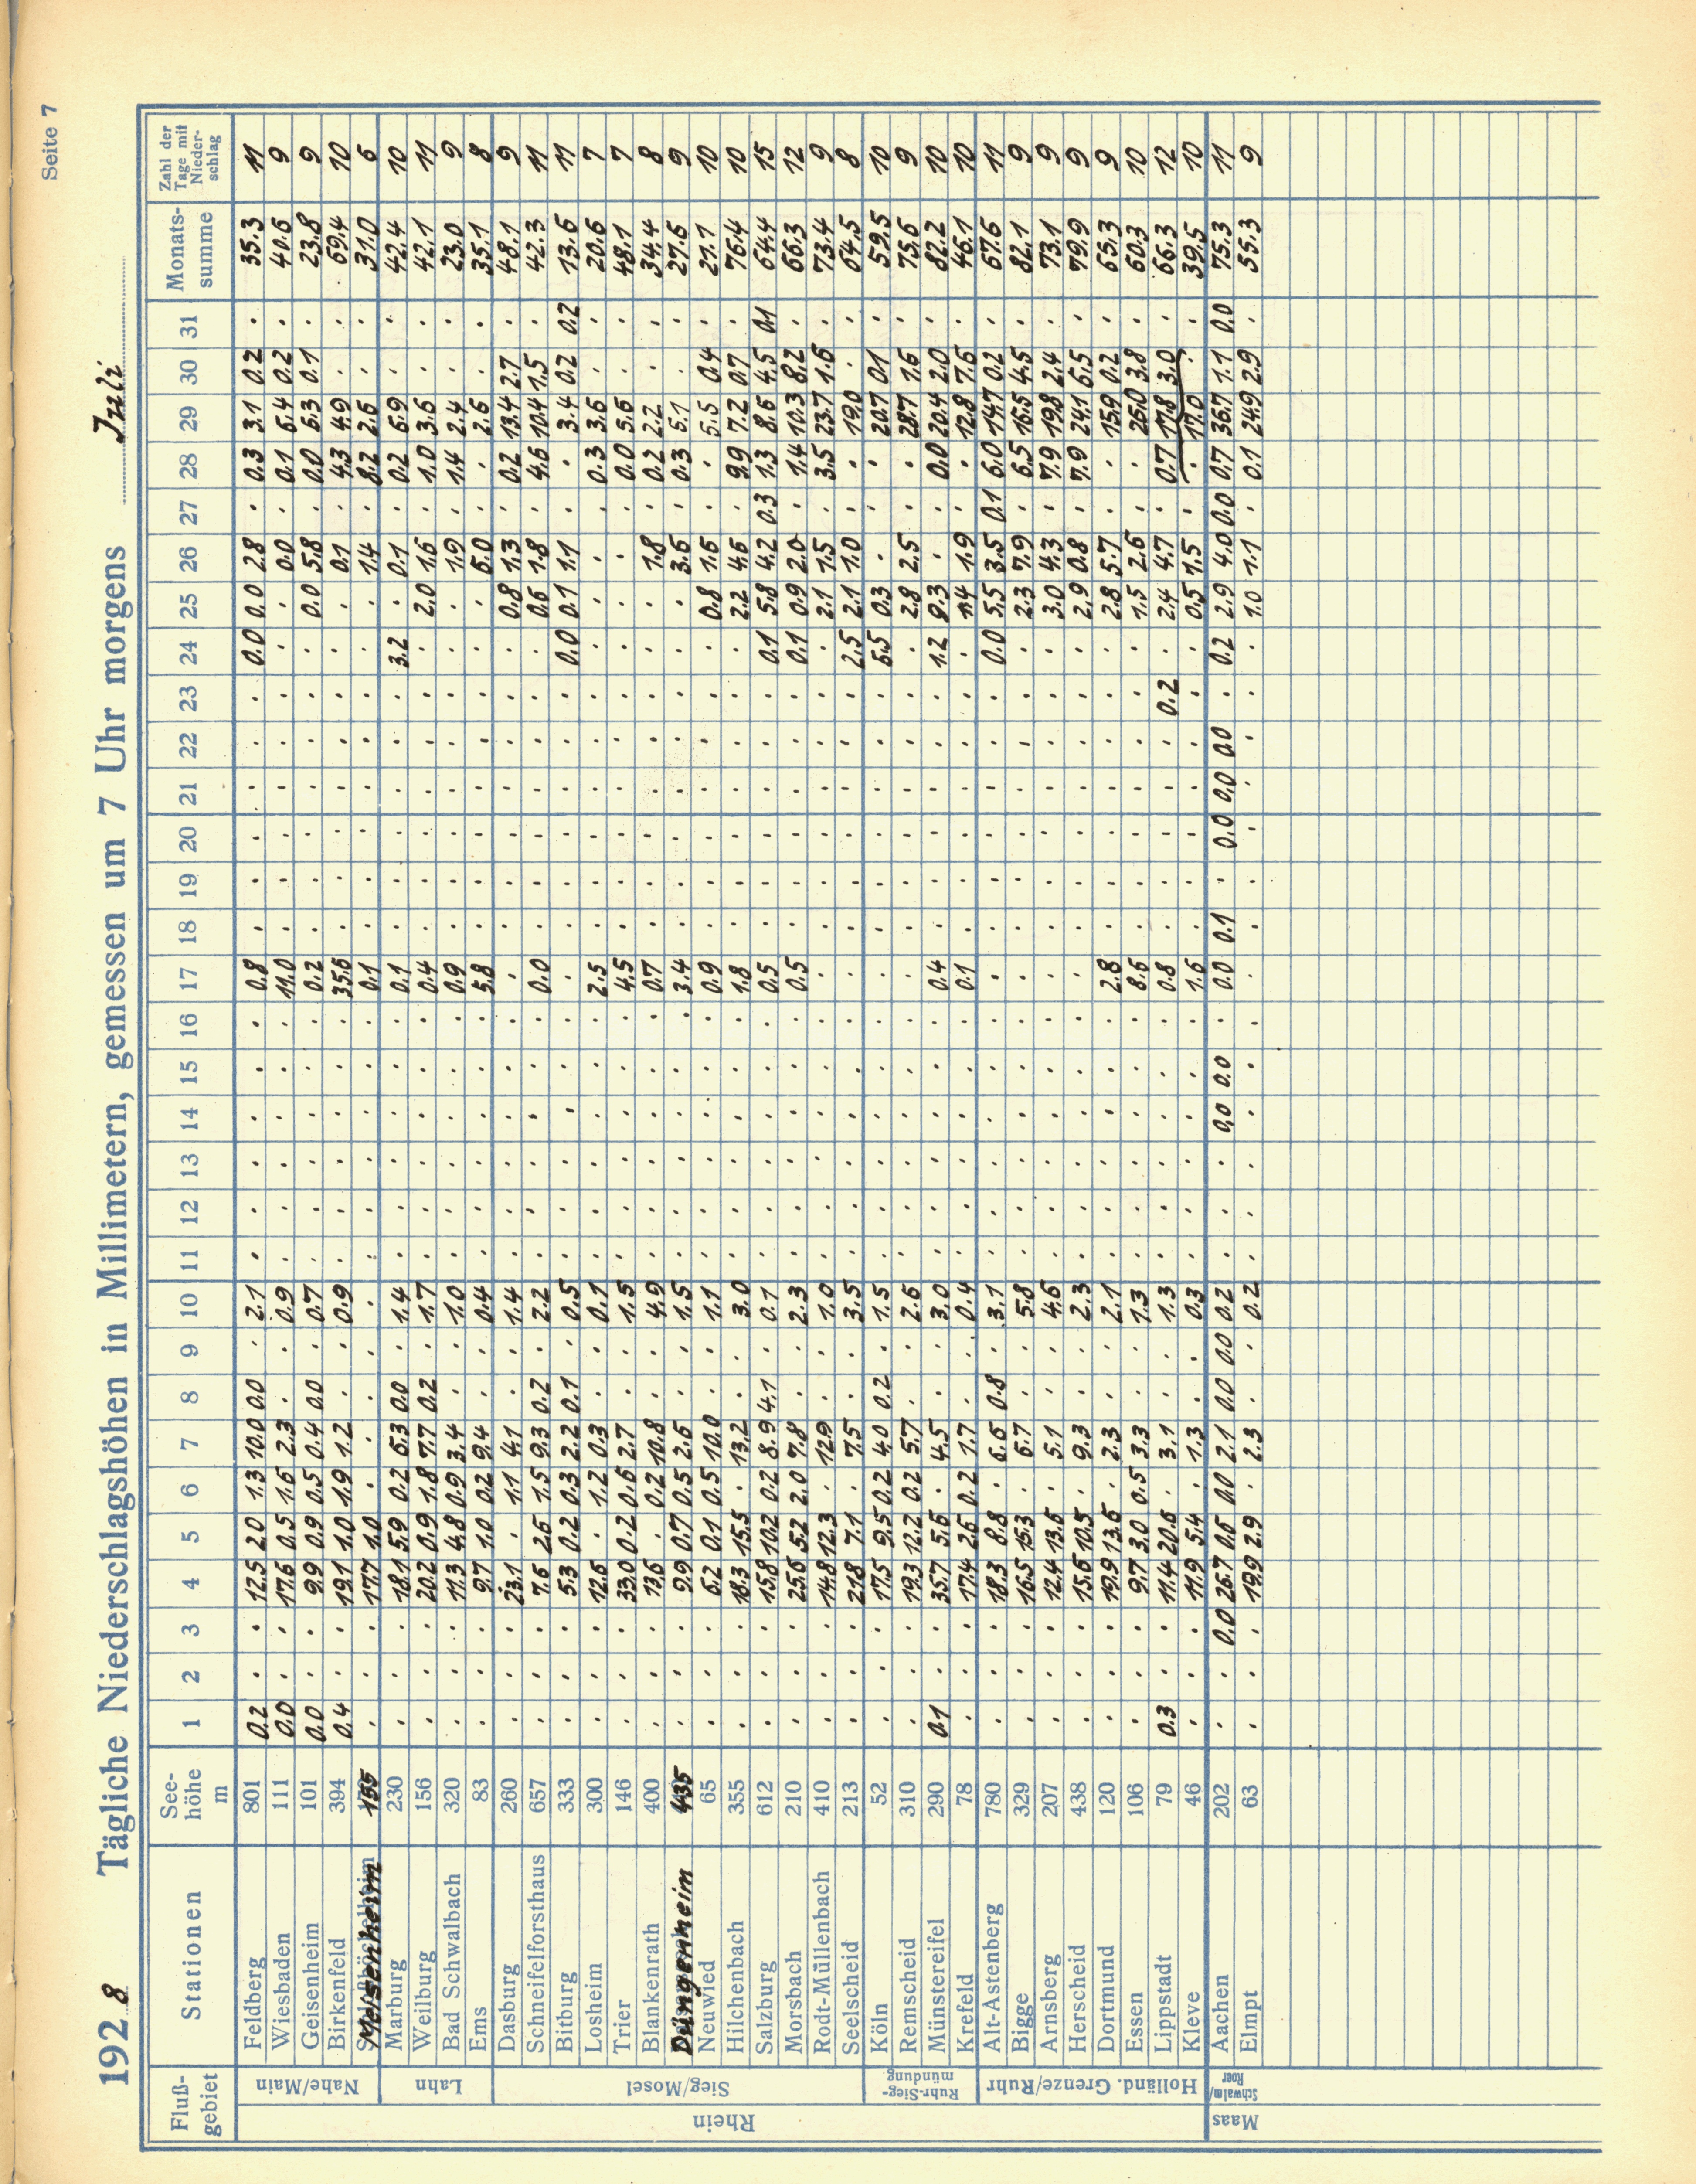 Seite 7
1928 Tägliche Niederschlagshöhen in Millimetern, gemessen um 7 Uhr morgens Juli
Fluß-gebiet Stationen See-höhe m 1 2 3 4 5 6 7 8 9 10 11 12 13 14 15 16 17 18 19 20 21 22 23 24 25 26 27 28 29 30 31 Monats-summe Zahl der Tage mit Nieder-schlag
Rhein
Nahe/Main
Feldberg 801 0.2 . . 12.5 2.0 1.3 10.0 0.0 . 2.1 . . . . . . 0.8 . . . . . . 0.0 0.0 2.8 . 0.3 3.1 0.2 . 35.3 11
Wiesbaden 111 0.0 . . 17.6 0.5 1.6 2.3 . . 0.9 . . . . . . 11.0 . . . . . . . . 0.0 . 0.1 6.4 0.2 . 40.6 9
Geisenheim 101 0.0 . . 9.9 0.9 0.5 0.4 0.0 . 0.7 . . . . . . 0.2 . . . . . . . 0.0 5.8 . 0.0 5.3 0.1 . 23.8 9
Birkenfeld 394 0.4 . . 19.1 1.0 1.9 1.2 . . 0.9 . . . . . . 35.6 . . . . . . . . 0.1 . 4.3 4.9 . . 69.4 10
Meisenheim 155 . . . 17.7 1.0 . . . . . . . . . . . 0.1 . . . . . . . . 1.4 . 8.2 2.6 . . 31.0 6
Lahn
Marburg 230 . . . 18.1 5.9 0.2 6.3 0.0 . 1.4 . . . . . . 0.1 . . . . . . 3.2 . 0.1 . 0.2 6.9 . . 42.4 10
Weilburg 156 . . . 20.2 0.9 1.8 7.7 0.2 . 1.7 . . . . . . 0.4 . . . . . . . 2.0 1.6 . 1.0 3.6 . . 42.1 11
Bad Schwalbach 320 . . . 11.3 4.8 0.9 3.4 . . 1.0 . . . . . . 0.9 . . . . . . . . 1.9 . 1.4 2.4 . . 23.0 9
Ems 83 . . . 9.7 1.0 0.2 9.4 . . 0.4 . . . . . . 5.8 . . . . . . . . 6.0 . . 2.6 . . 35.1 8
Sieg/Mosel
Dasburg 260 . . . 23.1 . 1.1 4.1 . . 1.4 . . . . . . . . . . . . . . 0.8 1.3 . 0.2 13.4 2.7 . 48.1 9
Schneifelforsthaus 657 . . . 7.6 2.6 1.5 9.3 0.2 . 2.2 . . . . . . 0.0 . . . . . . . 0.6 1.8 . 4.6 10.4 1.5 . 42.3 11
Bitburg 333 . . . 5.3 0.2 0.3 2.2 0.1 . 0.5 . . . . . . . . . . . . . 0.0 0.1 1.1 . . 3.4 0.2 0.2 13.6 11
Losheim 300 . . . 12.6 . 1.2 0.3 . . 0.1 . . . . . . 2.5 . . . . . . . . . . 0.3 3.6 . . 20.6 7
Trier 146 . . . 33.0 0.2 0.6 2.7 . . 1.5 . . . . . . 4.5 . . . . . . . . . . 0.0 5.6 . . 48.1 7
Blankenrath 400 . . . 13.6 . 0.2 10.8 . . 4.9 . . . . . . 0.7 . . . . . . . . 1.8 . 0.2 2.2 . . 34.4 8
Düngenheim 435 . . . 9.9 0.7 0.5 2.6 . . 1.5 . . . . . . 3.4 . . . . . . . . 3.6 . 0.3 5.1 . . 27.6 9
Neuwied 65 . . . 6.2 0.1 0.5 10.0 . . 1.1 . . . . . . 0.9 . . . . . . . 0.8 1.6 . . 5.5 0.4 . 27.1 10
Hilchenbach 355 . . . 18.3 15.5 . 13.2 . . 3.0 . . . . . . 1.8 . . . . . . . 2.2 4.6 . 9.9 7.2 0.7 . 76.4 10
Salzburg 612 . . . 15.8 10.2 0.2 8.9 4.1 . 0.1 . . . . . . 0.5 . . . . . . 0.1 5.8 4.2 0.3 1.3 8.6 4.5 0.1 64.4 15
Morsbach 210 . . . 25.6 5.2 2.0 7.8 . . 2.3 . . . . . . 0.5 . . . . . . 0.1 0.9 2.0 . 1.4 10.3 8.2 . 66.3 12
Rodt-Müllenbach 410 . . . 14.8 12.3 . 12.9 . . 1.0 . . . . . . . . . . . . . . 2.1 1.5 . 3.5 23.7 1.6 . 73.4 9
Seelscheid 213 . . . 21.8 7.1 . 7.5 . . 3.5 . . . . . . . . . . . . . 2.5 2.1 1.0 . . 19.0 . . 64.5 8
Ruhr-Sieg-mündung
Köln 52 . . . 17.5 9.5 0.2 4.0 0.2 . 1.5 . . . . . . . . . . . . . 5.5 0.3 . . . 20.7 0.1 . 59.5 10
Remscheid 310 . . . 19.3 12.2 0.2 5.7 . . 2.6 . . . . . . . . . . . . . . 2.8 2.5 . . 28.7 1.6 . 75.6 9
Münstereifel 290 0.1 . . 35.7 5.6 . 4.5 . . 3.0 . . . . . . 0.4 . . . . . . 1.2 9.3 . . 0.0 20.4 2.0 . 82.2 10
Krefeld 78 . . . 17.4 2.6 0.2 1.7 . . 0.4 . . . . . . 0.1 . . . . . . . 1.4 1.9 . . 12.8 7.6 . 46.1 10
Holländ. Grenze/Ruhr
Alt-Astenberg 780 . . . 18.3 8.8 . 6.6 0.8 . 3.1 . . . . . . . . . . . . . 0.0 5.5 3.5 0.1 6.0 14.7 0.2 . 67.6 11
Bigge 329 . . . 16.5 15.3 . 6.7 . . 5.8 . . . . . . . . . . . . . . 2.3 7.9 . 6.5 16.5 4.5 . 82.1 9
Arnsberg 207 . . . 12.4 13.6 . 5.1 . . 4.6 . . . . . . . . . . . . . . 3.0 4.3 . 7.9 19.8 2.4 . 73.1 9
Herscheid 438 . . . 15.6 10.5 . 9.3 . . 2.3 . . . . . . . . . . . . . . 2.9 0.8 . 7.9 24.1 6.5 . 79.9 9
Dortmund 120 . . . 19.9 13.6 . 2.3 . . 2.1 . . . . . . 2.8 . . . . . . . 2.8 5.7 . . 15.9 0.2 . 65.3 9
Essen 106 . . . 9.7 3.0 0.5 3.3 . . 1.3 . . . . . . 8.6 . . . . . . . 1.5 2.6 . . 26.0 3.8 . 60.3 10
Lippstadt 79 0.3 . . 11.4 20.6 . 3.1 . . 1.3 . . . . . . 0.8 . . . . . 0.2 . 2.4 4.7 . 0.7 17.8 3.0 . 66.3 12
Kleve 46 . . . 11.9 5.4 . 1.3 . . 0.3 . . . . . . 1.6 . . . . . . . 0.5 1.5 . . 17.0 . . 39.5 10
Maas
Schwalm/Roer
Aachen 202 . . 0.0 26.7 0.6 0.0 2.1 0.0 0.0 0.2 . . . 0.0 0.0 . 0.0 0.1 . 0.0 0.0 0.0 . 0.2 2.9 4.0 0.0 0.7 36.7 1.1 0.0 75.3 11
Elmpt 63 . . . 19.9 2.9 . 2.3 . . 0.2 . . . . . . . . . . . . . . 1.0 1.1 . 0.1 24.9 2.9 . 55.3 9